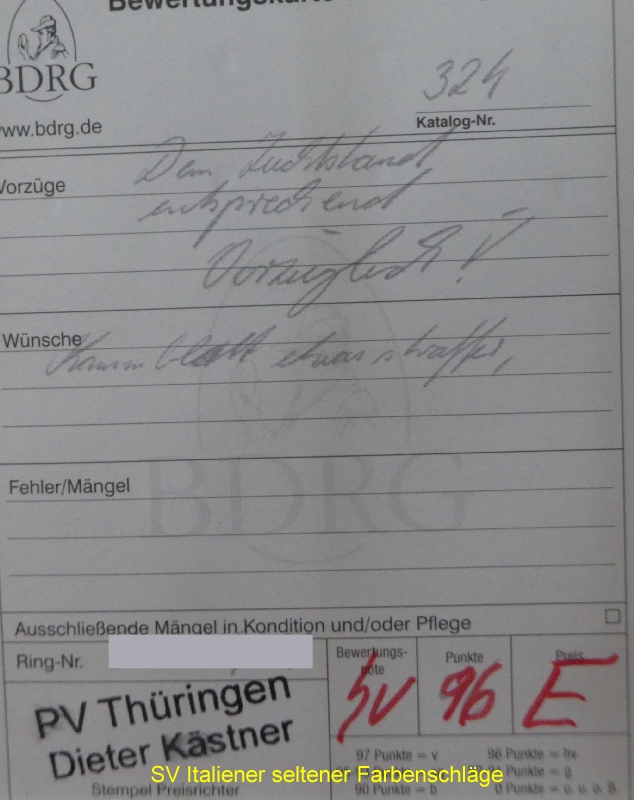 Bewertungskarte
BDRG
www.bdrg.de
324
Katalog-Nr.
Vorzüge
Dem Zuchtstand
entsprechend
Vorzüglich!
Wünsche
Kammblatt etwas straffer,
BDRG
Fehler/Mängel
Ausschließende Mängel in Kondition und/oder Pflege
Ring-Nr.
Bewertungs-
note
Punkte
Preis
SV
96
E
PV Thüringen
Dieter Kästner
97 Punkte = v 96 Punkte = hv
Punkte = g
90 Punkte = b 0 Punkte = u. u. o. B.
Stempel Preisrichter
SV Italiener seltener Farbenschläge